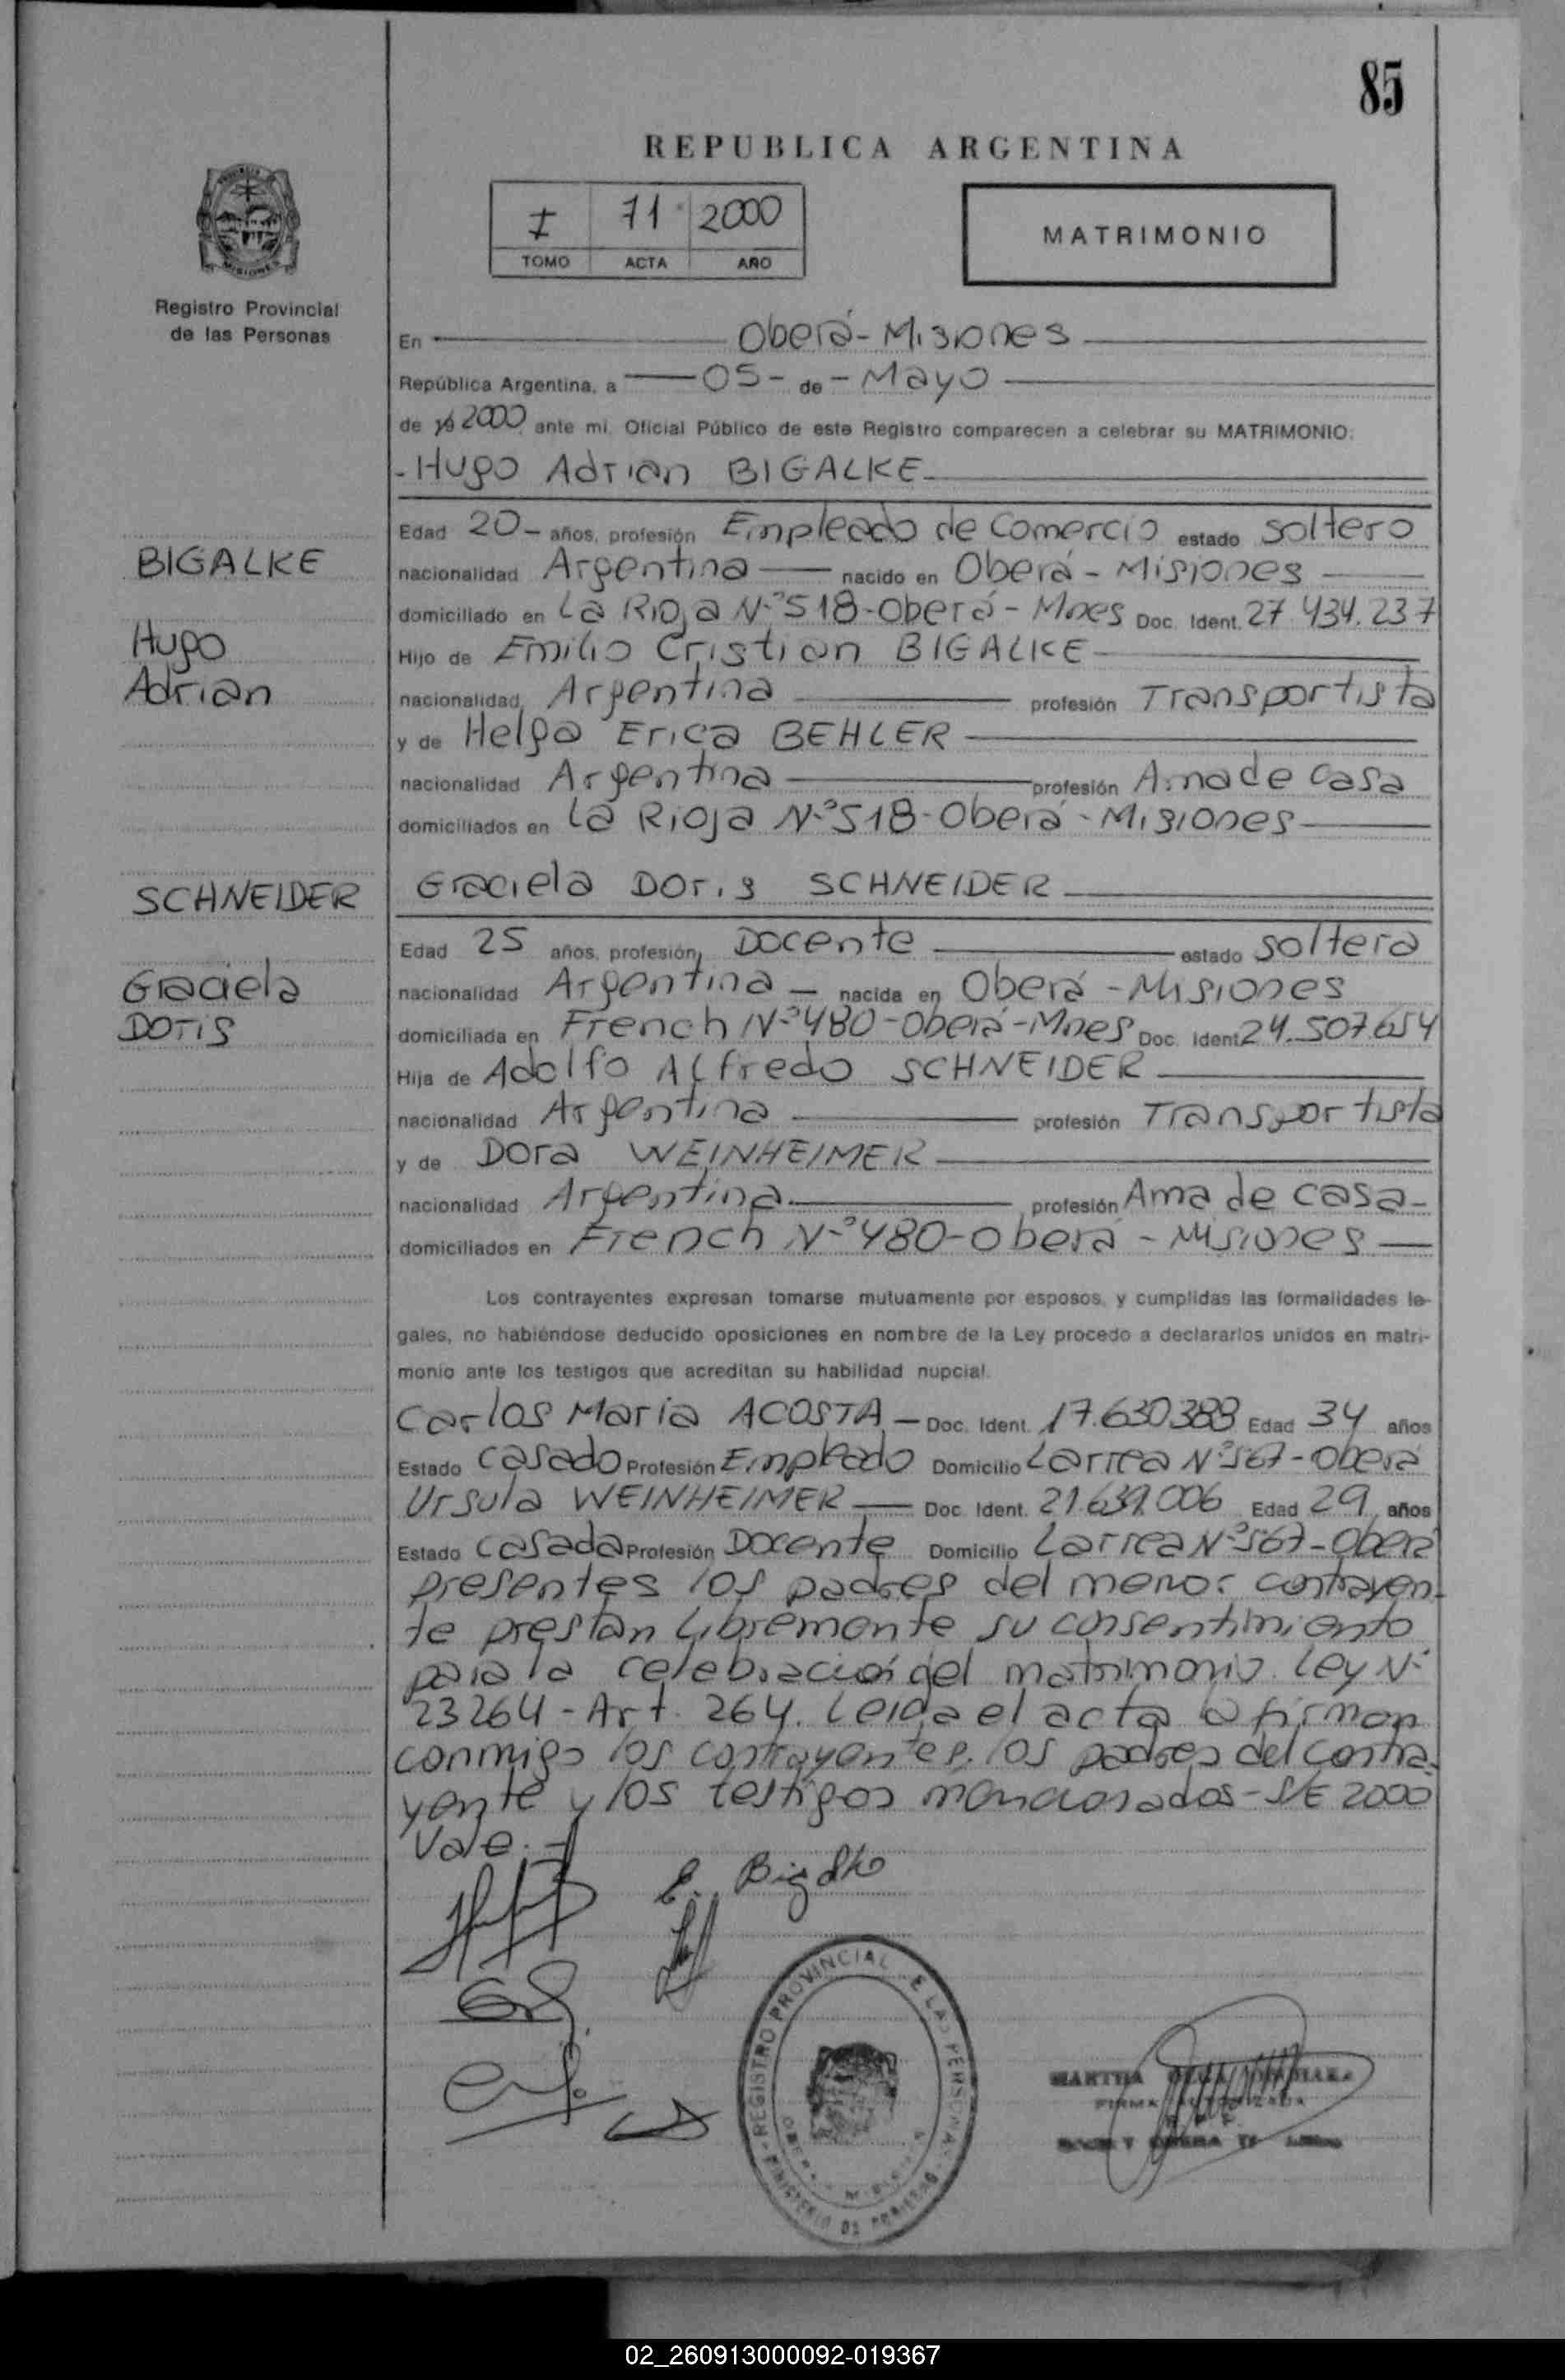 85
REPUBLICA ARGENTINA
I 71 2000
TOMO ACTA AÑO
MATRIMONIO
MISIONES
Registro Provincial
de las Personas
En Oberá - Misiones
República Argentina, a 05 - de - Mayo
de 19 2000 ante mi, Oficial Público de este Registro comparecen a celebrar su MATRIMONIO:
- Hugo Adrian BIGALKE
Edad 20 - años, profesión Empleado de Comercio estado soltero
BIGALKE
nacionalidad Argentina nacido en Oberá - Misiones
domiciliado en La Rioja N.º 518 - Oberá - Mnes Doc. Ident. 27.434.237
Hugo
Hijo de Emilio Cristian BIGALKE
Adrian
nacionalidad Argentina profesión Transportista
y de Helga Erica BEHLER
nacionalidad Argentina profesión Ama de casa
domiciliados en La Rioja N.º 518 - Oberá - Misiones
SCHNEIDER
Graciela Doris SCHNEIDER
Edad 25 años, profesión Docente estado soltera
Graciela
nacionalidad Argentina - nacida en Oberá - Misiones
Doris
domiciliada en French N.º 480 - Oberá - Mnes Doc. Ident. 24.507.654
Hija de Adolfo Alfredo SCHNEIDER
nacionalidad Argentina profesión Transportista
y de Dora WEINHEIMER
nacionalidad Argentina profesión Ama de casa -
domiciliados en French N.º 480 - Oberá - Misiones
Los contrayentes expresan tomarse mutuamente por esposos, y cumplidas las formalidades le-
gales, no habiéndose deducido oposiciones en nombre de la Ley procedo a declararlos unidos en matri-
monio ante los testigos que acreditan su habilidad nupcial.
Carlos Maria ACOSTA - Doc. Ident. 17.630388 Edad 34 años
Estado casado Profesión Empleado Domicilio Larrea Nº 567 - Oberá
Ursula WEINHEIMER Doc. Ident. 21.639.006 Edad 29 años
Estado casada Profesión Docente Domicilio Larrea Nº 567 - Oberá
presentes los padres del menor contrayen-
te prestan libremente su consentimiento
para la celebración del matrimonio. Ley Nº
23264 - Art. 264. Leida el acta la firman
conmigo los contrayentes, los padres del contra-
yente y los testigos mencionados - S/E 2000
Vale. -
E. Bigalke
REGISTRO PROVINCIAL DE LAS PERSONAS
MINISTERIO DE GOBIERNO
MARTHA
FIRMA AUTORIZADA
02_260913000092-019367